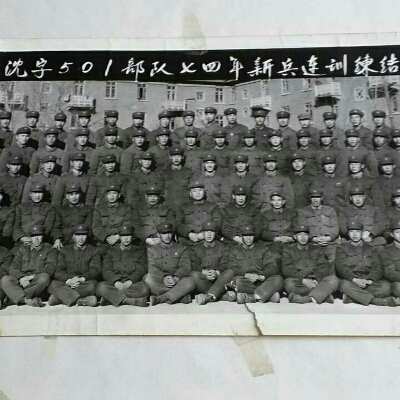 沈字501部队七四年新兵连训练结